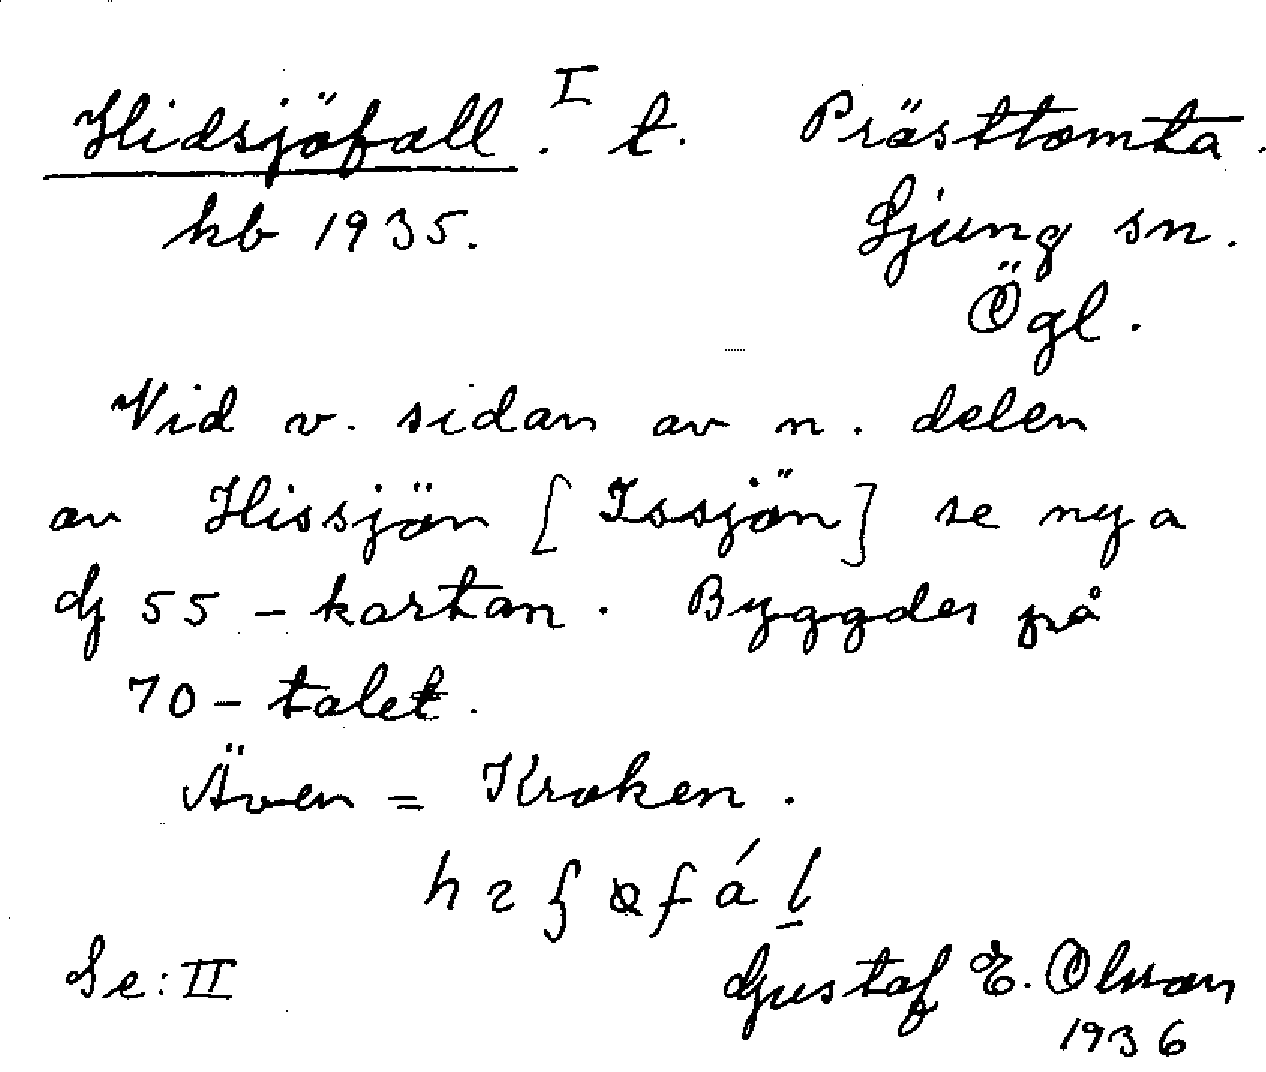 Hidsjöfall. I t. Prästtomta.
kb 1935. Ljung sn.
Ögl.
Vid v. sidan av n. delen
av Hissjön [Issjön] se nya
dj 55 - kartan. Byggdes på
70 - talet.
Även = Kroken.
Se: II Gustaf E. Olsson
1936